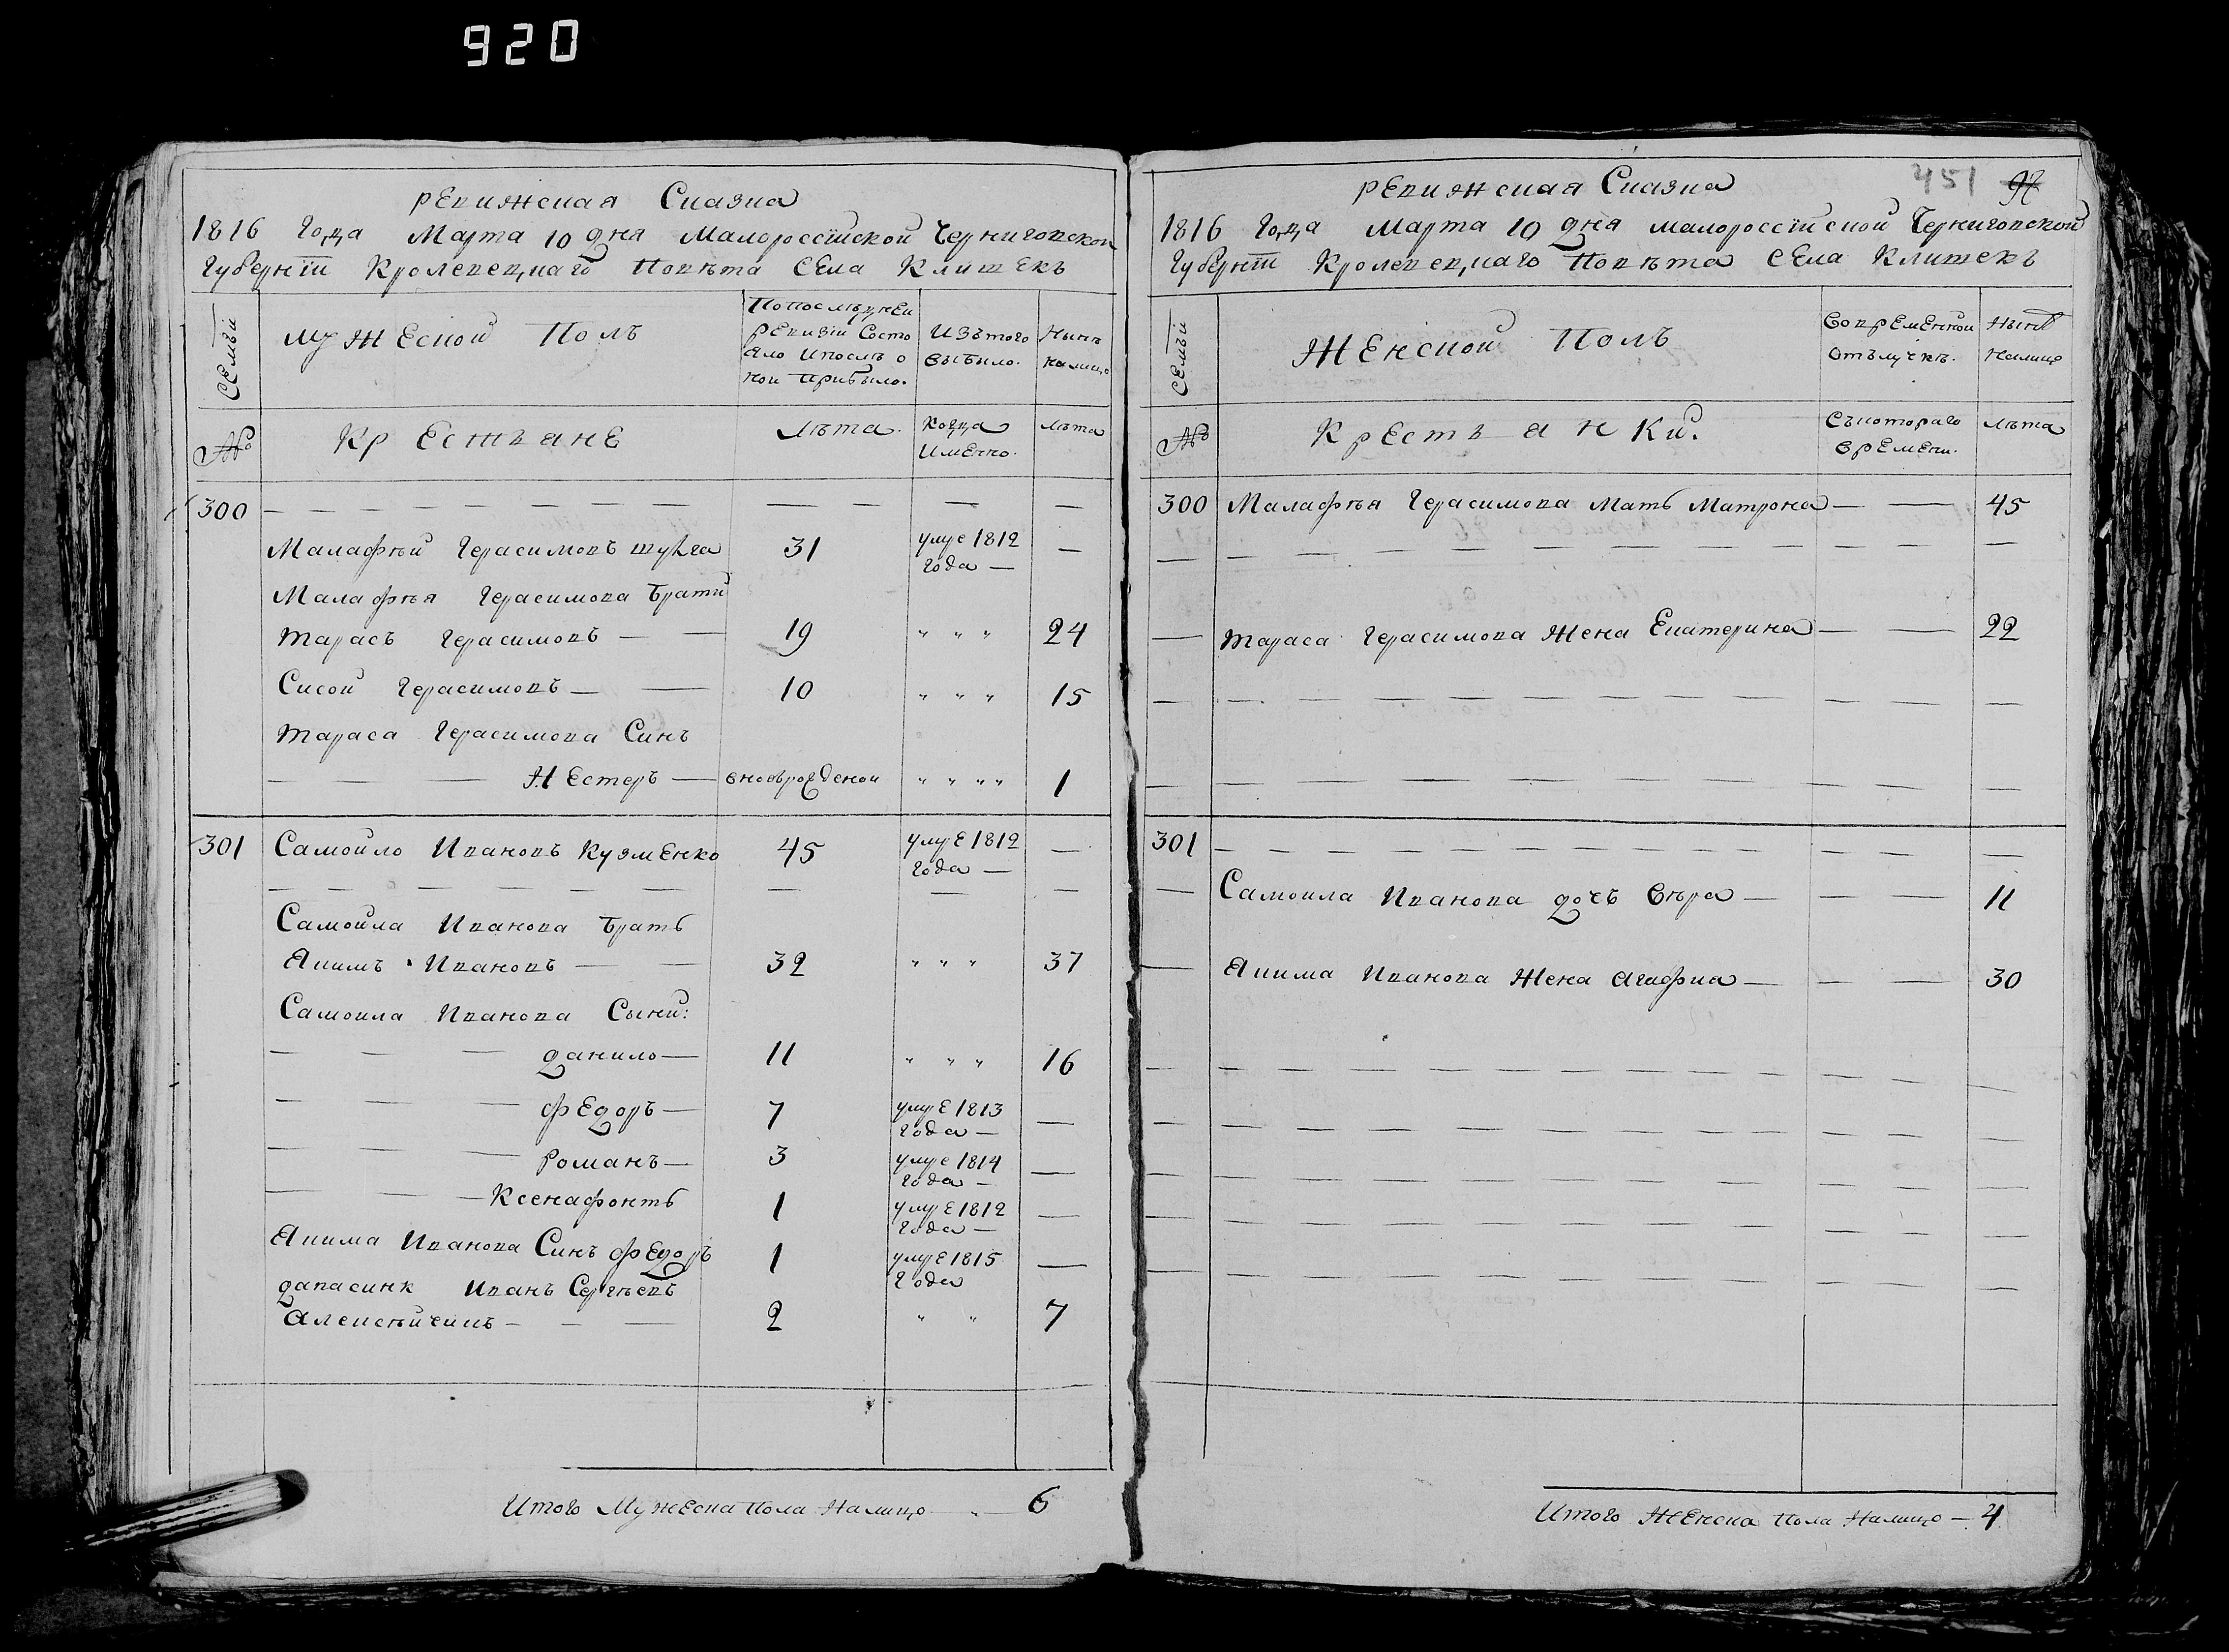 920
Ревижская Сказка
1816 Года Марта 10 дня Малороссїйской Черниговской
Губернїи Кролевецкаго Повѣта Села Клишекъ
Семьи
Мужеской Полъ
Попослѣдней
ревизїи Состо
яло ипослѣ о
ной прибыло.
Изътого
выбыло.
Нынѣ
налицо
№
Крестьяне
Лѣта.
Когда
имЕнно.
Лѣта
300
Малафѣй Герасимовъ
31
умре 1812
года —
—
Малафѣя Герасимова Брати
Тарасъ Герасимовъ — —
19
" " "
24
Сисой Герасимовъ — —
10
" " "
15
Тараса Герасимова Синъ
— — — Нестеръ —
вноврожденой
" " " "
1
301
Самойло Ивановъ Кузменко
45
умре 1812
года —
—
Самойла Иванова Братъ
Якимъ Ивановъ — —
32
" " "
37
Самоила Иванова Сыни:
— — — данило —
11
" " "
16
— — — федоръ —
7
умре 1813
года —
—
— — — Романъ —
3
умре 1814
года —
—
— — — Ксенафонтъ
1
умре 1812
года —
—
Якима Иванова Синъ федоръ
1
умре 1815
года
—
Иванъ Сергѣевъ
2
" "
7
Итого Мужеска пола Налицо — 6
451
97
Ревижская Сказка
1816 Года Марта 10 дня малороссїйской Черниговской
Губернїи Кролевецкаго Повѣта Села Клишекъ
Семьи
Женской Полъ
Вовременной
отълучкѣ.
Нынѣ
Налицо
№
Крестьянки.
Съкотораго
времени.
Лѣта
300
Малафѣя Герасимова Мать Матрона — —
45
— Тараса Герасимова Жена Екатерина — —
22
301
— Самоила Иванова дочъ Вѣра — — —
11
— Якима Иванова Жена Агафиа — — —
30
Итого Женска Пола Налицо — 4